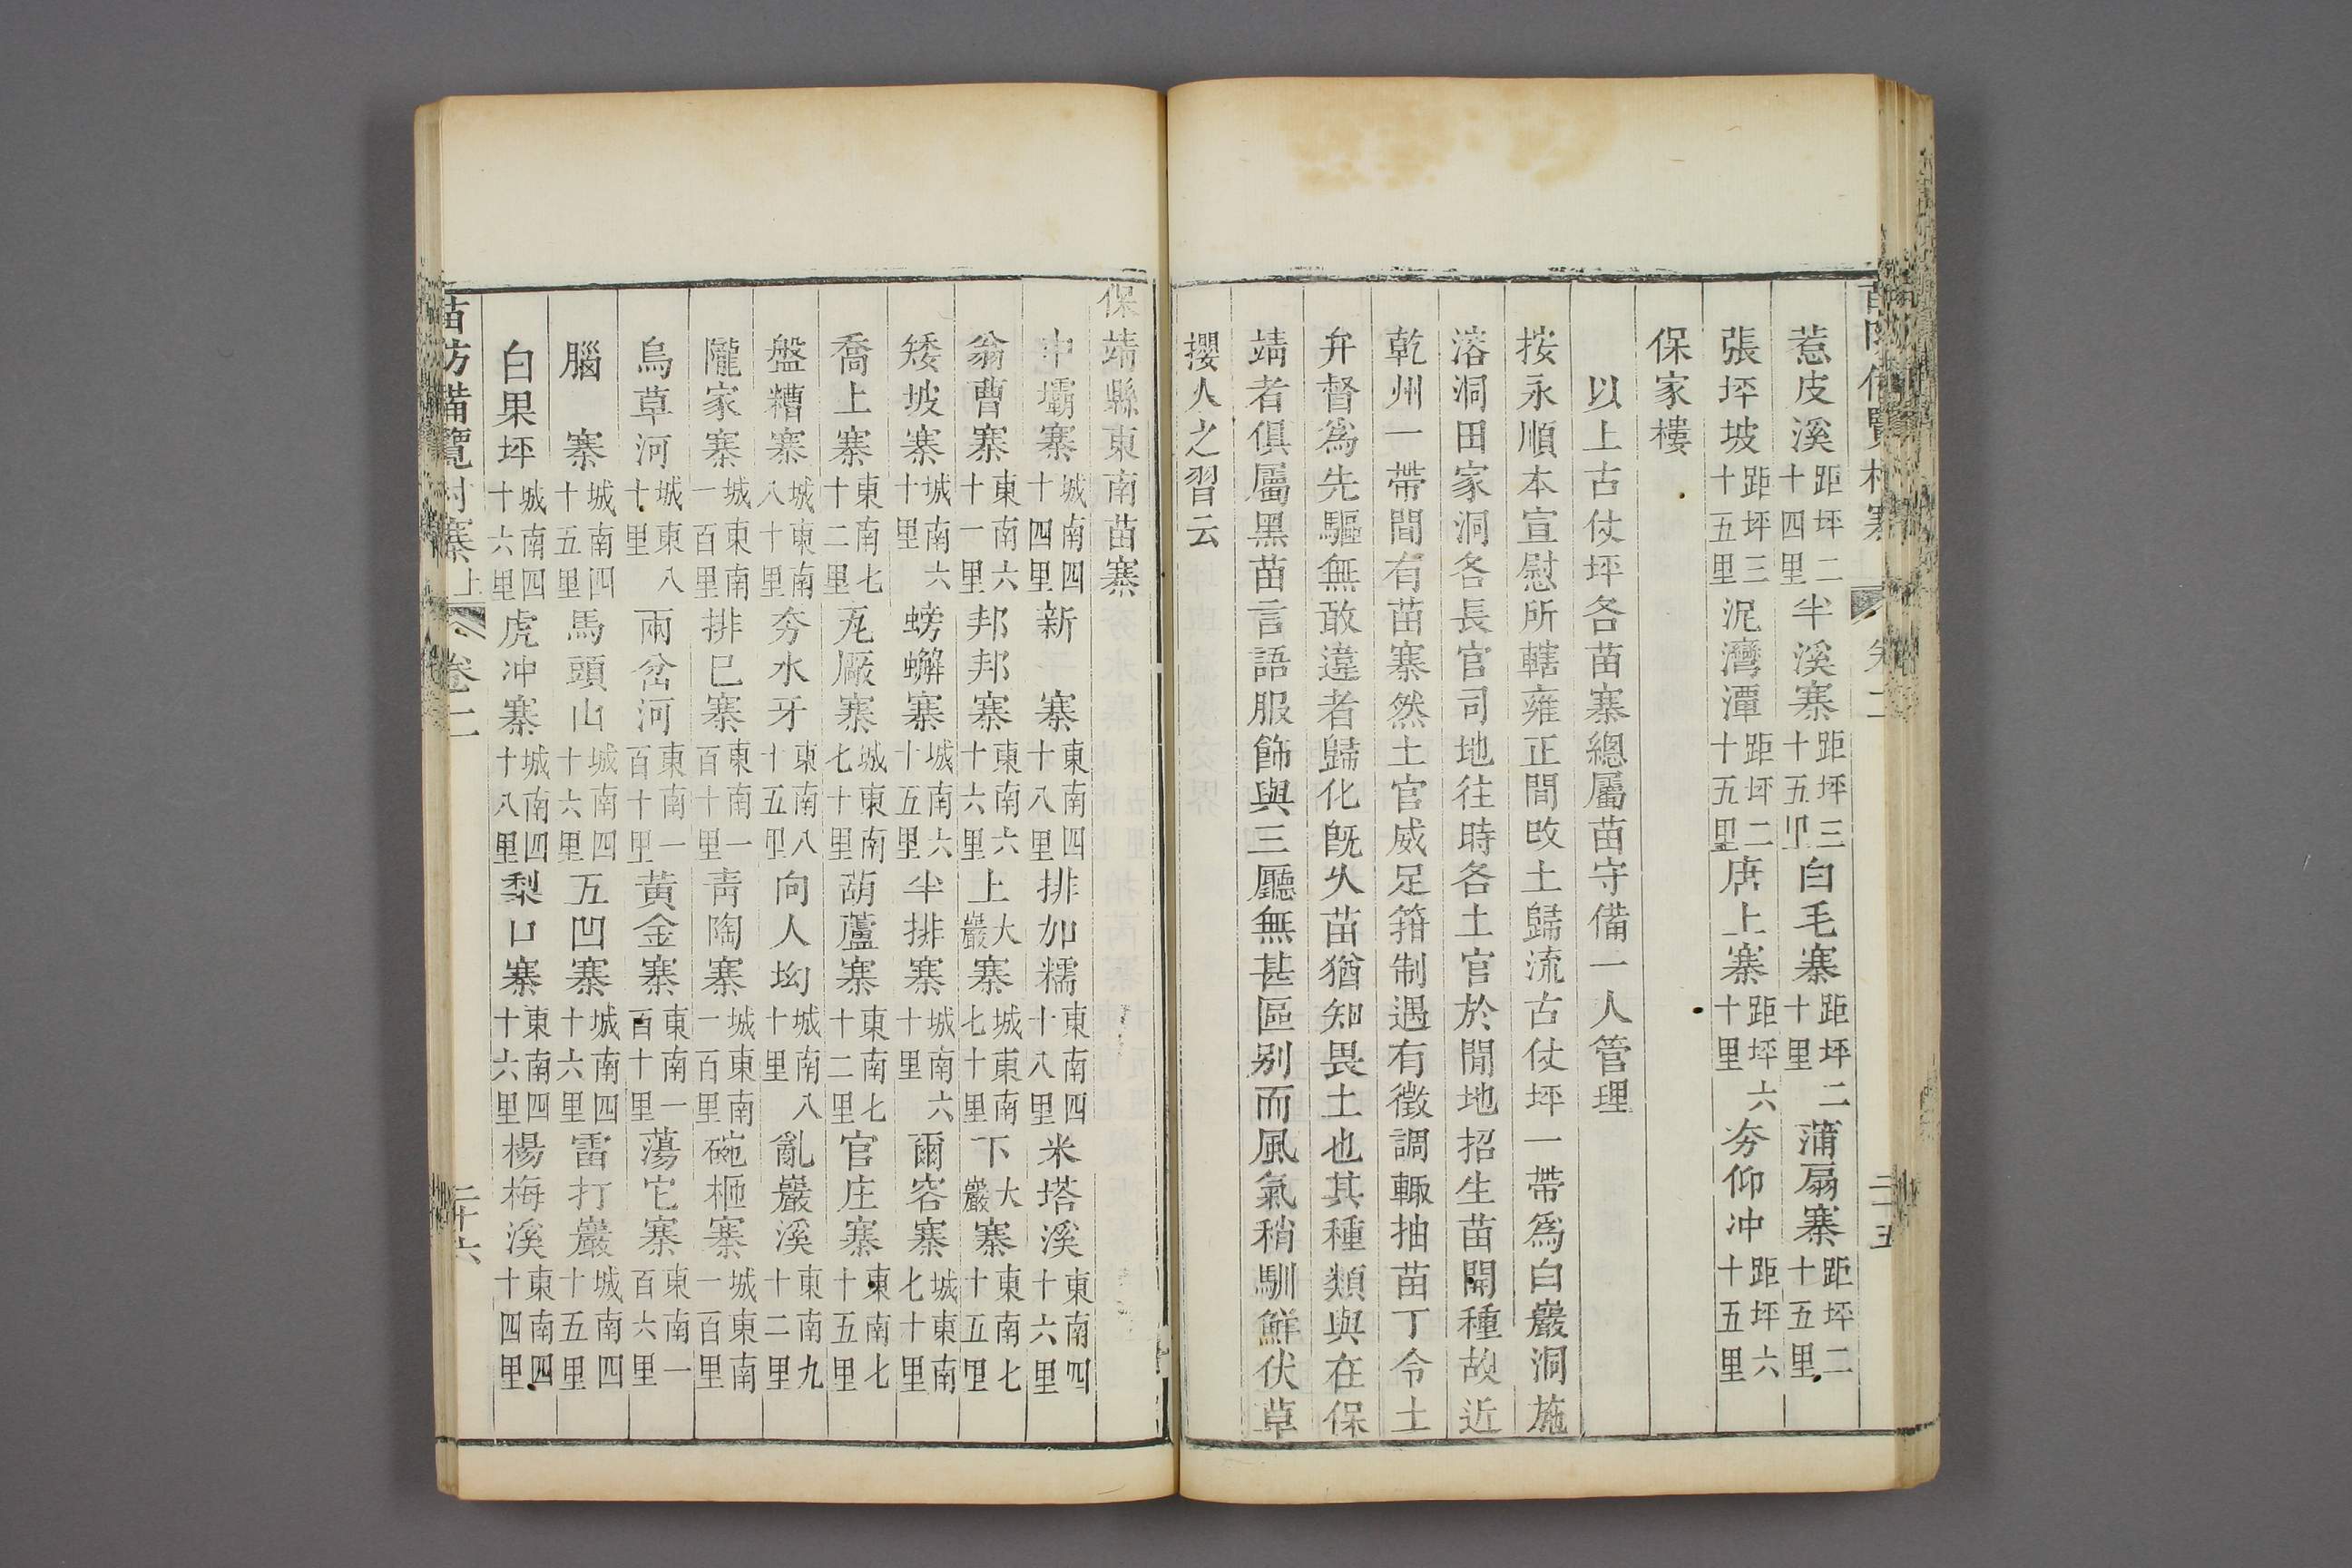 惹皮溪距坪二十四里半溪寨距坪三十五里白毛寨距坪二十里蒲扇寨距坪二十五里
張坪坡距坪三十五里泥灣潭距坪二十五里唐上寨距坪六十里夯仰冲距坪六十五里
保家樓
以上古仗坪各苗寨總屬苗守備一人管理
按永順本宣慰所轄雍正間改土歸流古仗坪一帶爲白巖洞施
溶洞田家洞各長官司地往時各土官於閒地招生苗開種故近
乾州一帶間有苗寨然土官威足箝制遇有徵調輒抽苗丁令土
弁督爲先驅無敢違者歸化旣久苗猶知畏土也其種類與在保
靖者俱屬黑苗言語服飾與三廳無甚區别而風氣稍馴鮮伏草
攖人之習云
保靖縣東南苗寨
中壩寨城南四十四里新寨東南四十八里排加糯東南四十八里米塔溪東南四十六里
翁曹寨東南六十一里邦邦寨東南六十六里上大巖寨城東南七十里下大巖寨東南七十五里
矮坡寨城南六十里螃蠏寨城南六十五里半排寨城南六十里爾容寨城東南七十里
喬上寨東南七十二里旡厰寨城東南七十里葫蘆寨東南七十二里官庄寨東南七十五里
盤糟寨城東南八十里夯水牙東南八十五里向人坳城南八十里亂巖溪東南九十二里
隴家寨城東南一百里排巳寨東南一百十里靑陶寨城東南一百里碗柂寨城東南一百里
烏草河城東八十里兩岔河東南一百十里黃金寨東南一百十里蕩它寨東南一百六里
腦寨城南四十五里馬頭山城南四十六里五凹寨城南四十六里雷打巖城南四十五里
白果坪城南四十六里虎冲寨城南四十八里梨口寨東南四十六里楊梅溪東南四十四里
苗防備覽村寨上 卷二 二十六